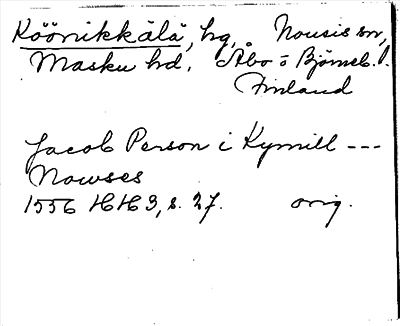 Köönikkälä, hg, Nousis sn,
Masku hd. Åbo o Björneb. l.
Finland
Jacob Person i Kymill ---
Nowses
1556 HH 3, s. 27. orig.